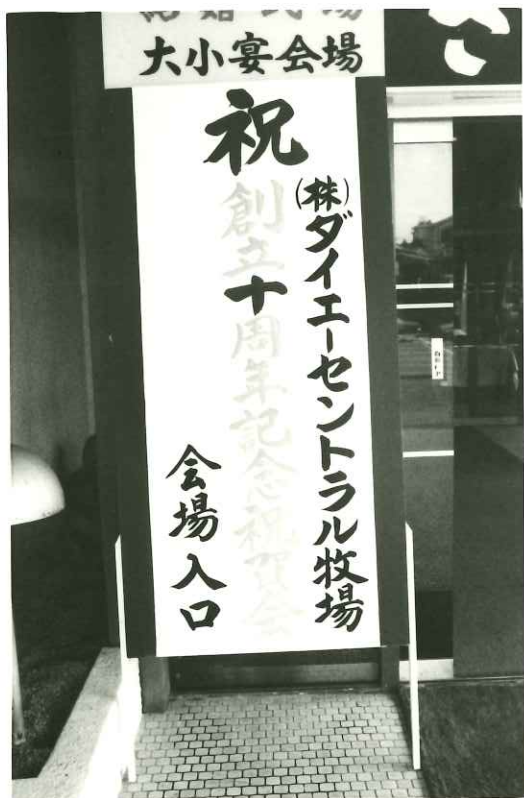 結婚式場
大小宴会場
祝
(株)ダイエーセントラル牧場
創立十周年記念祝賀会
会場入口